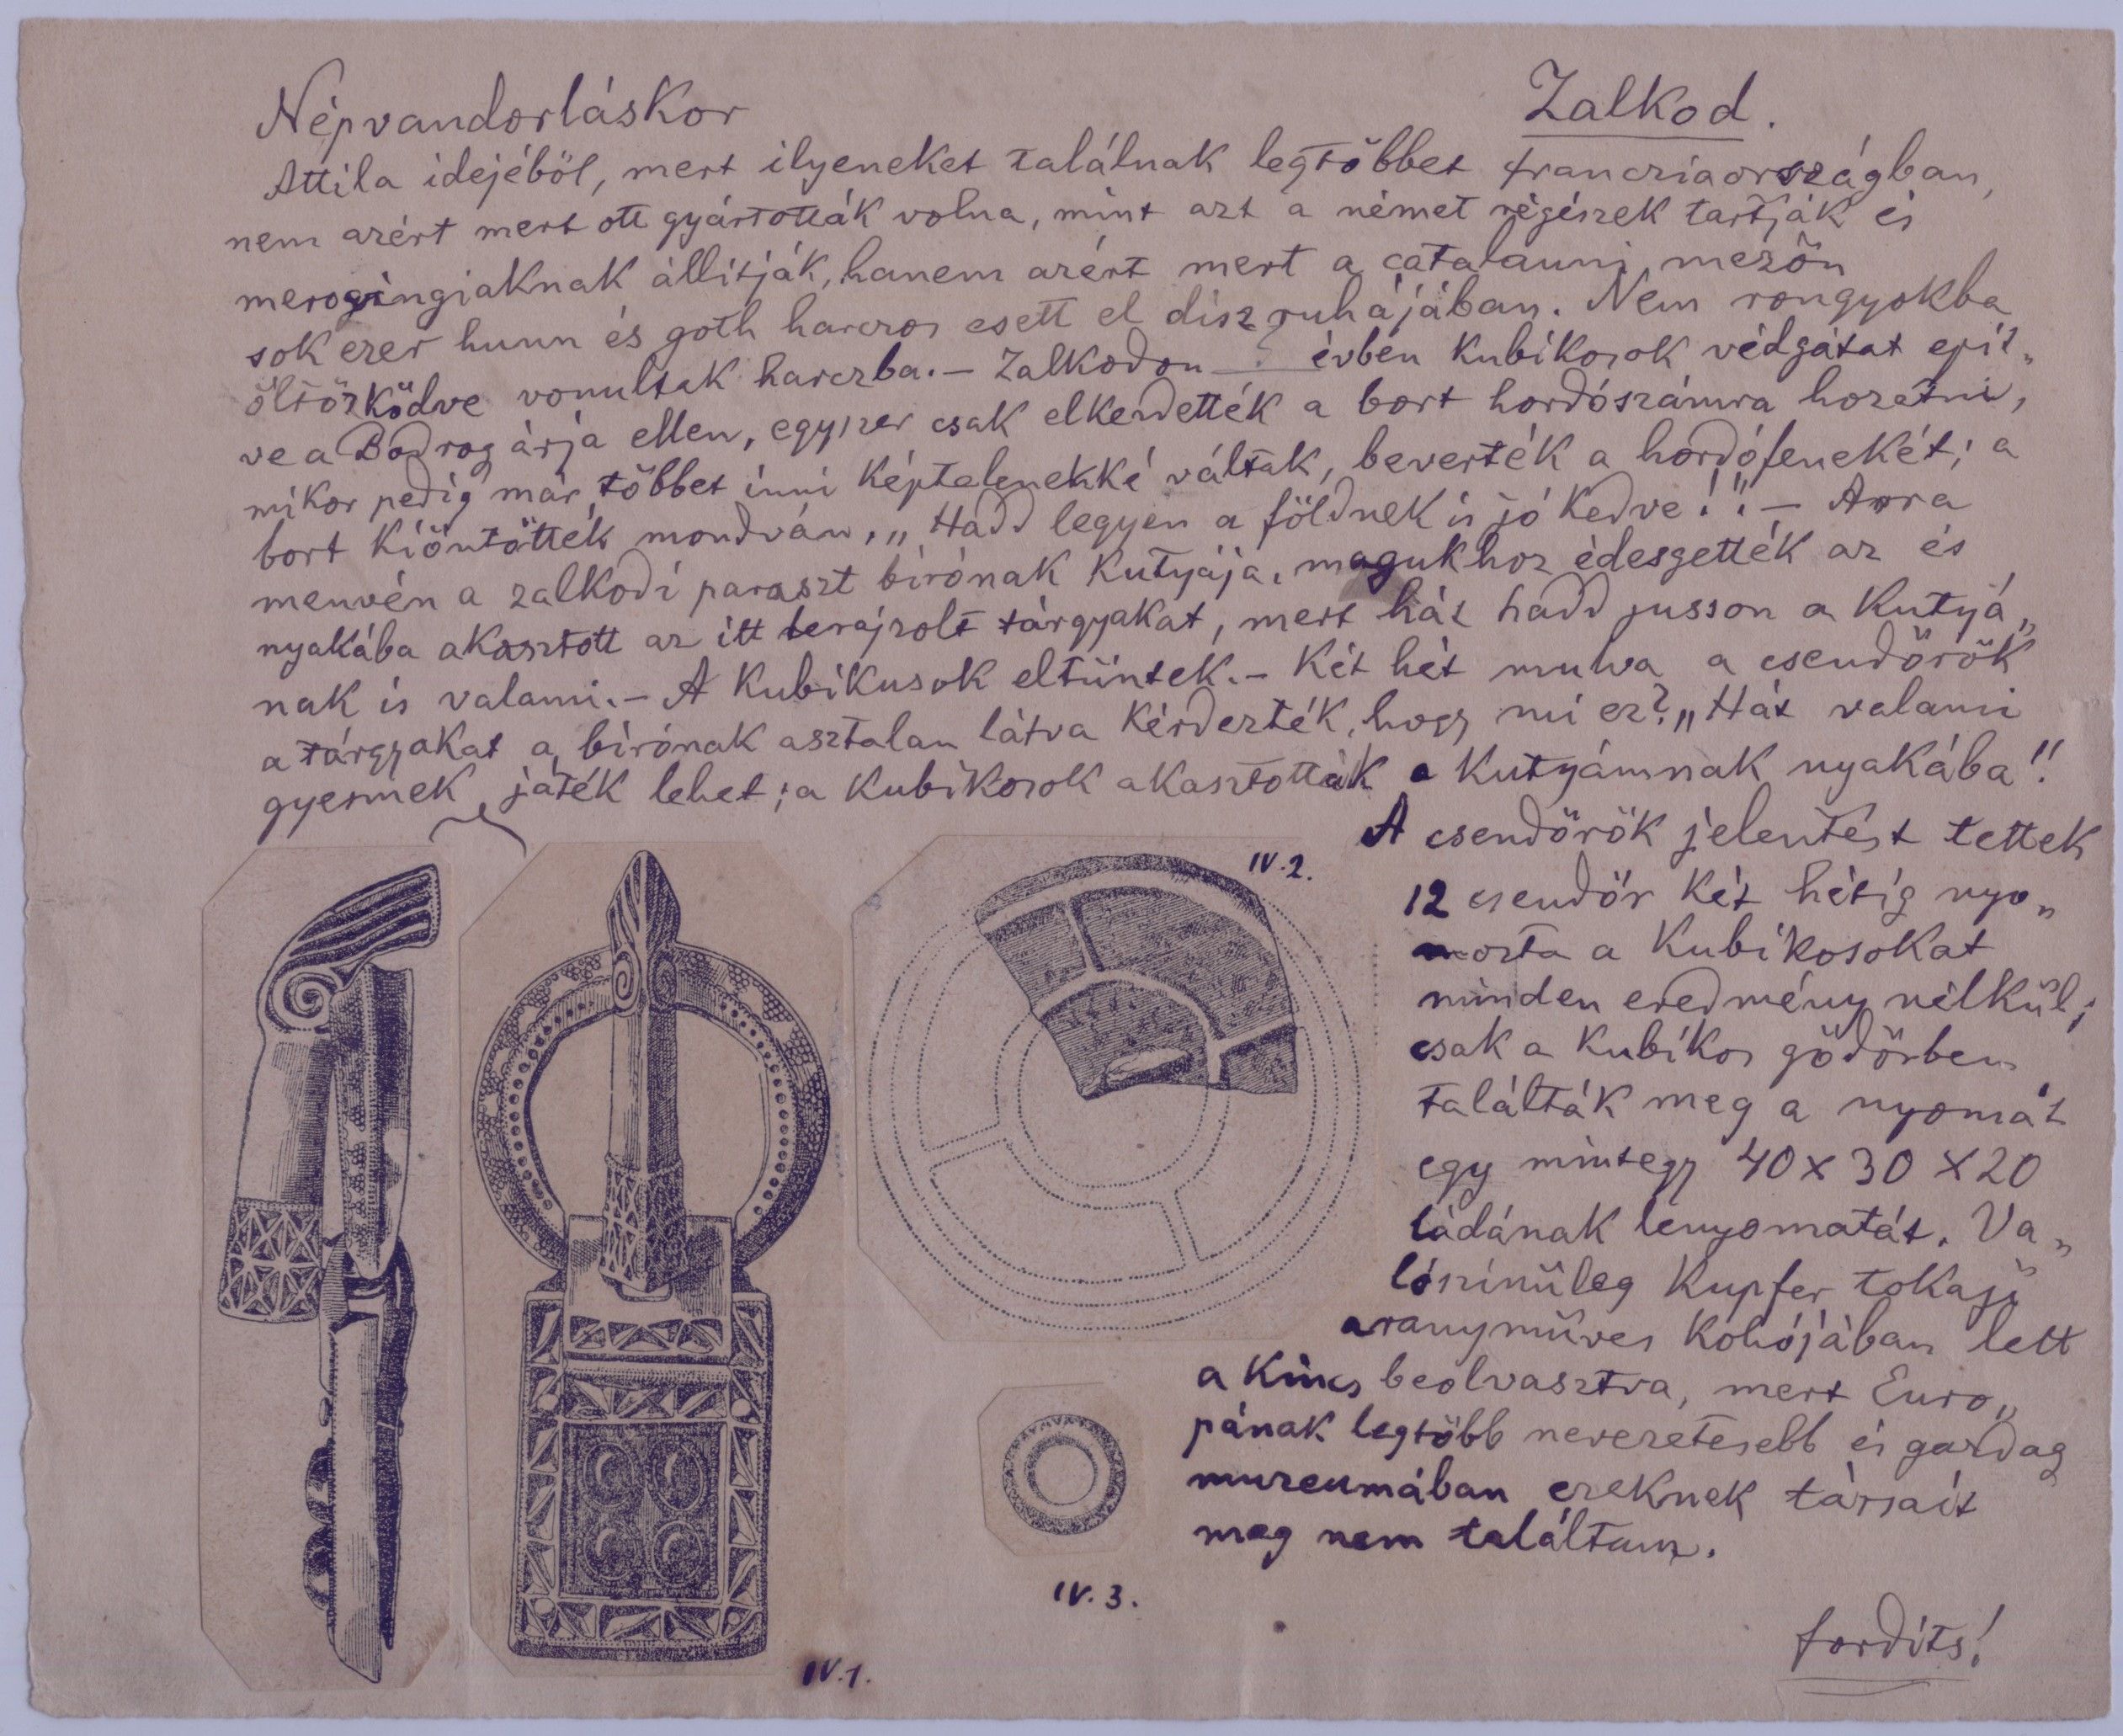 Népvandorláskor
Zalkod.
Attila idejéből, mert ilyeneket találnak legtöbbet francziaországban,
nem azért mert ott gyártották volna, mint azt a német régészek tartják és
merogingiaknak állitják, hanem azért mert a catalauni mezőn
sok ezer hunn és goth harczos esett el disz ruhájában. Nem rongyokba
öltözködve vonultak harczba.– Zalkodon ? évben Kubikosok védgátat epit„
ve a Bodrog árja ellen, egyszer csak elkezdették a bort hordószámra hozatni,
mikor pedig már többet inni Képtelenekké váltak, beverték a hordófenekét; a
bort Kiöntötték mondván, „Hadd legyen a földnek is jó Kedve!"– Arra
menvén a zalkodi paraszt birónak Kutyája, magukhoz édesgették az és
nyakába akasztott az itt lerajzolt tárgyakat, mert hát hadd jusson a Kutyá„
nak is valami.– A Kubikusok eltüntek.– Két hét mulva a csendörök
a tárgyakat a birónak asztalan látva Kérdezték, hogy mi ez? „Hát valami
gyermek játék lehet; a Kubikosok akasztották a Kutyámnak nyakába"!
A csendörök jelentést tettek
12 csendör Két hétig nyo„
mozta a Kubikosokat
minden eredmény nélkül;
csak a Kubikos gödörben
találták meg a nyomát
egy mintegy 40 x 30 x 20
ládának lenyomatát. Va„
lószinüleg Kupfer tokaji
aranymüves Kohójában lett
a Kincs beolvasztva, mert Euro„
pának legtöbb nevezetesebb és gazdag
muzeumában ezeknek társait
meg nem találtam.
IV.2.
IV.3.
IV.1.
fordits!